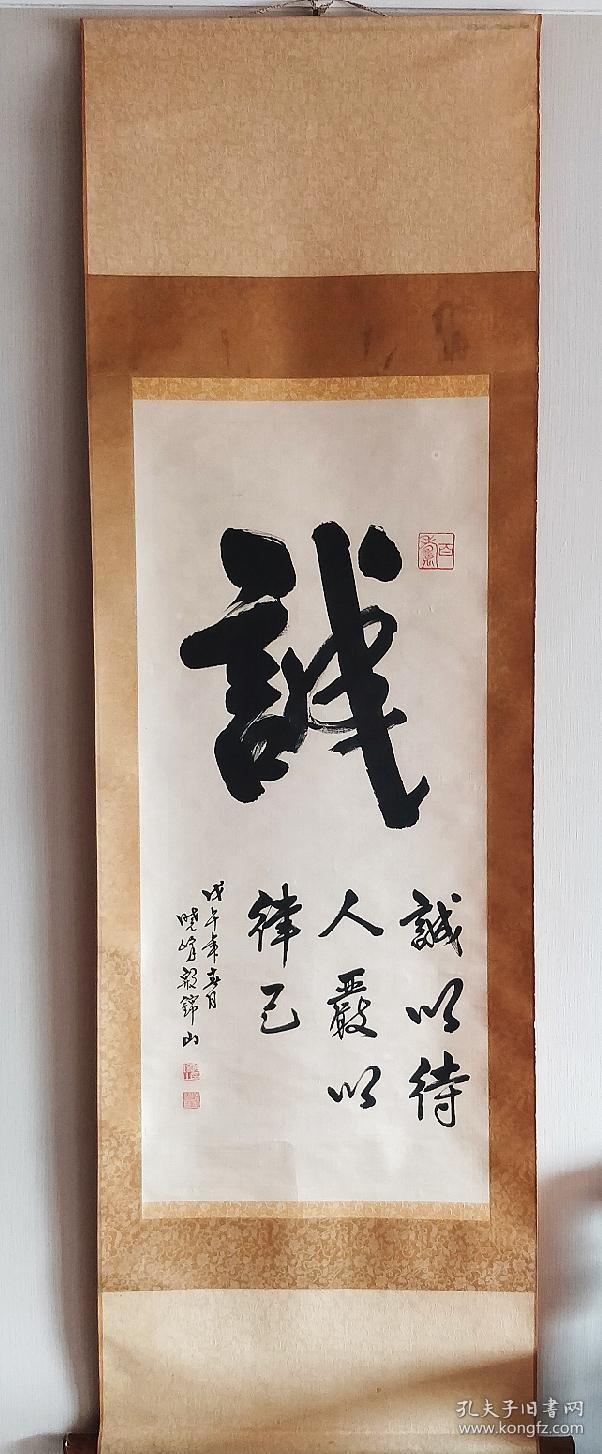 誠
誠以待
人嚴以
律己
戊午年春月
曉峰 錦山
孔夫子旧書网
www.kongfz.com